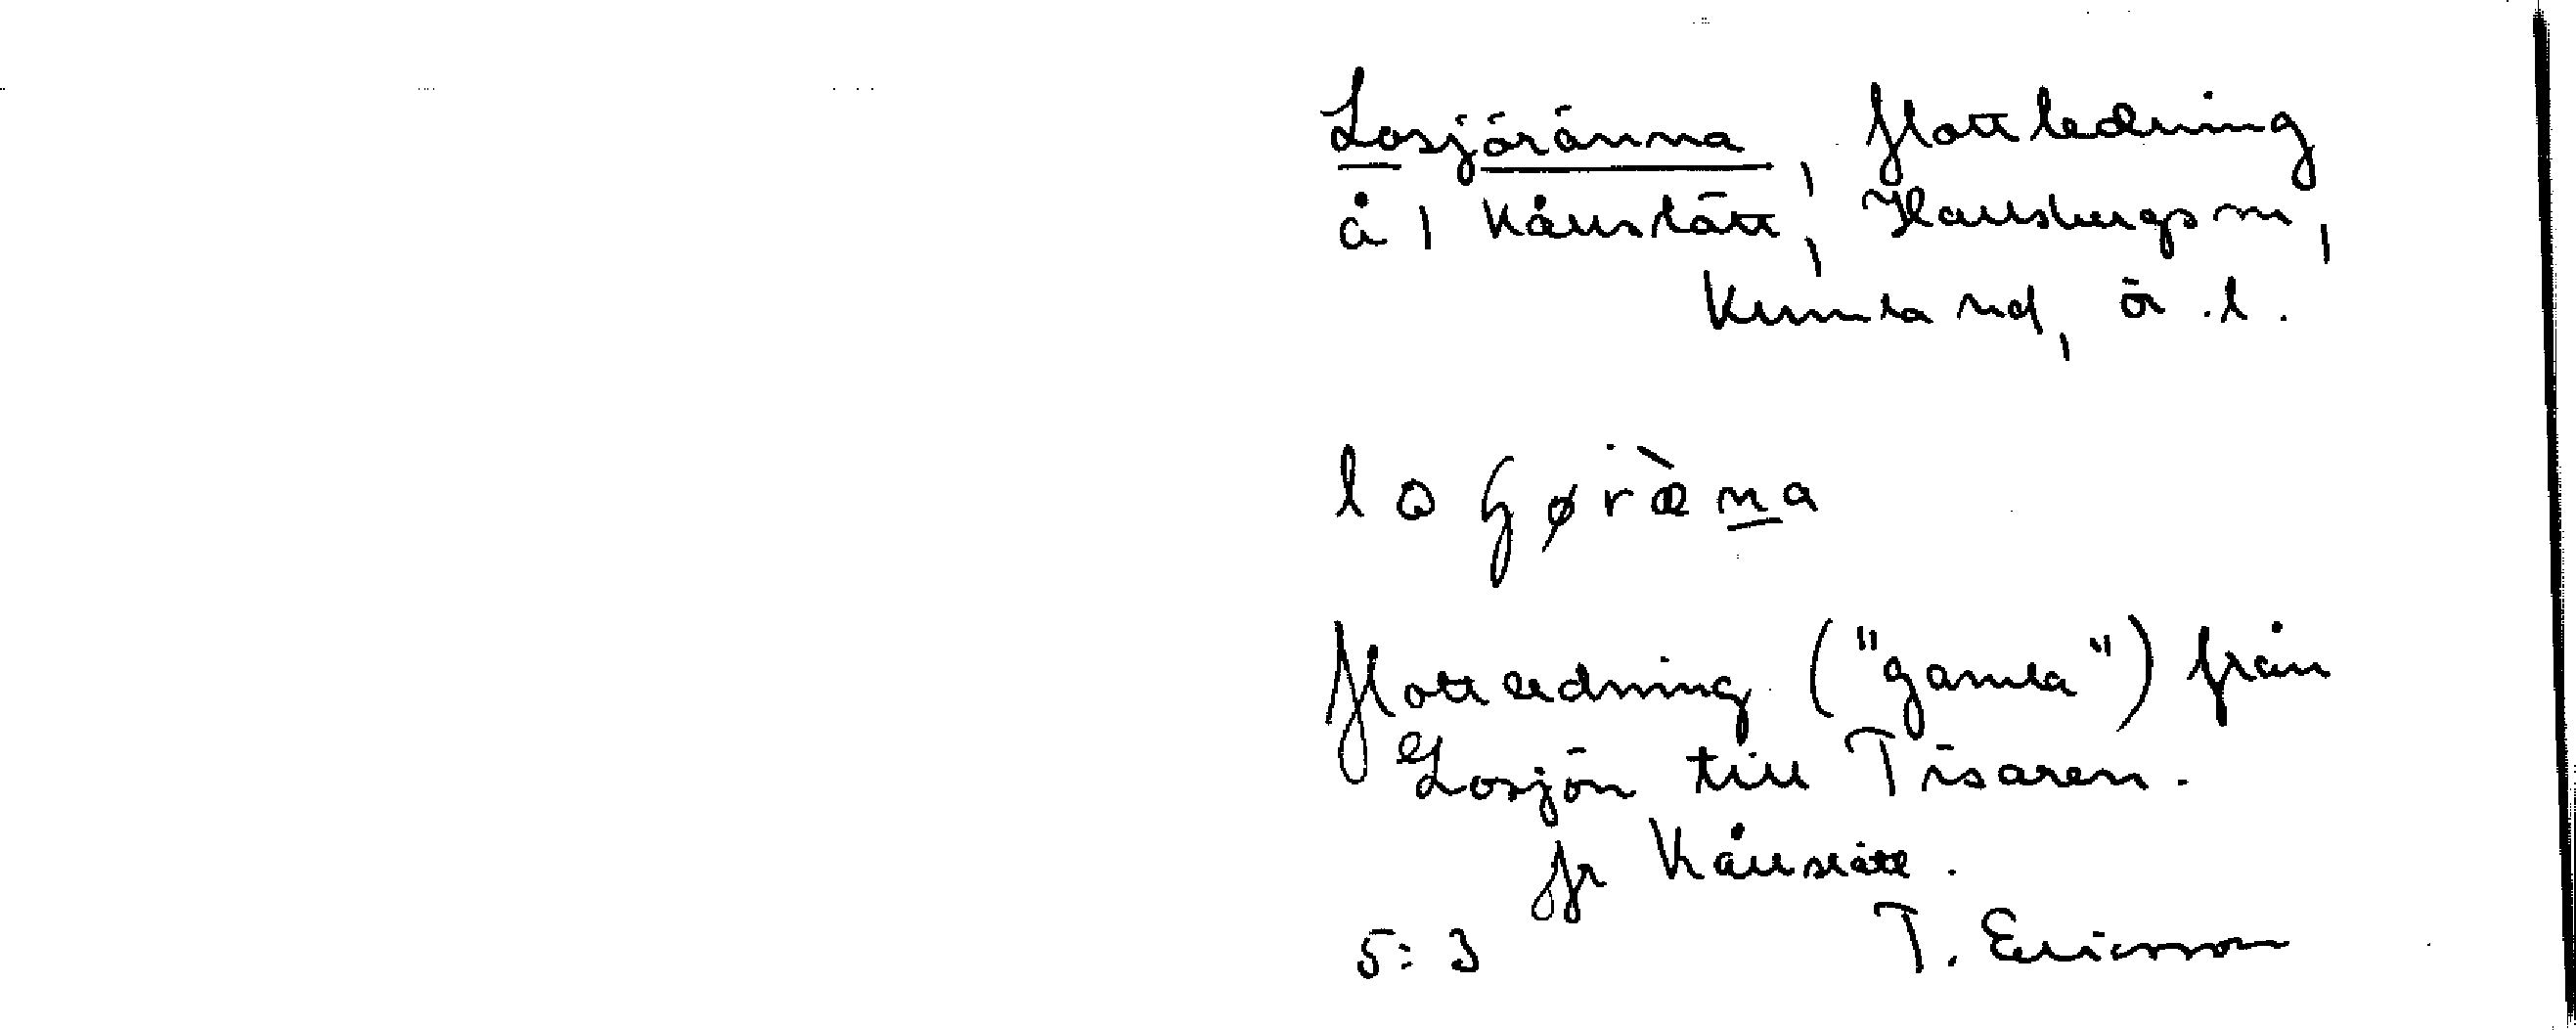 Losjöränna, flottledning
å, Kånslätt, Hallsbergs sn,
Kumla hd, Ör. l.
flottledning ("gamla") från
Losjön till Tisaren.
fr Kånslätt.
5:3 T. Ericsson